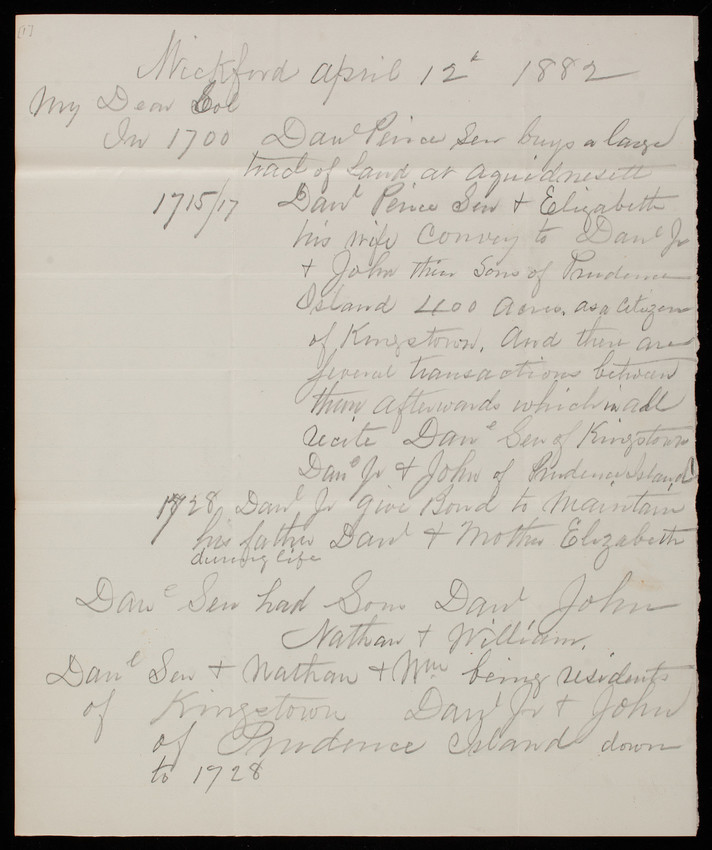 [1]
Wickford April 12th 1882
My Dear Col
In 1700 Danl Peirce Sen buys a large
tract of Land at Aquidnesett
1715/17 Danl Peirce Sen + Elizabeth
his wife Convey to Danl Jr
+ John their Sons of Prudence
Island 400 Acres. as a Citizen
of Kingstown. And there are
several transactions between
them afterwards which in all
recite Danl Sen of Kingstown
Danl Jr + John of Prudence Island
1728 Danl Jr give Bond to Maintain
his father Danl + Mother Elizabeth
during life
Danl Sen had Sons Danl John
Nathan + William.
Danl Sen + Nathan + Wm being residents
of Kingstown Danl Jr + John
of Prudence Island down
to 1728